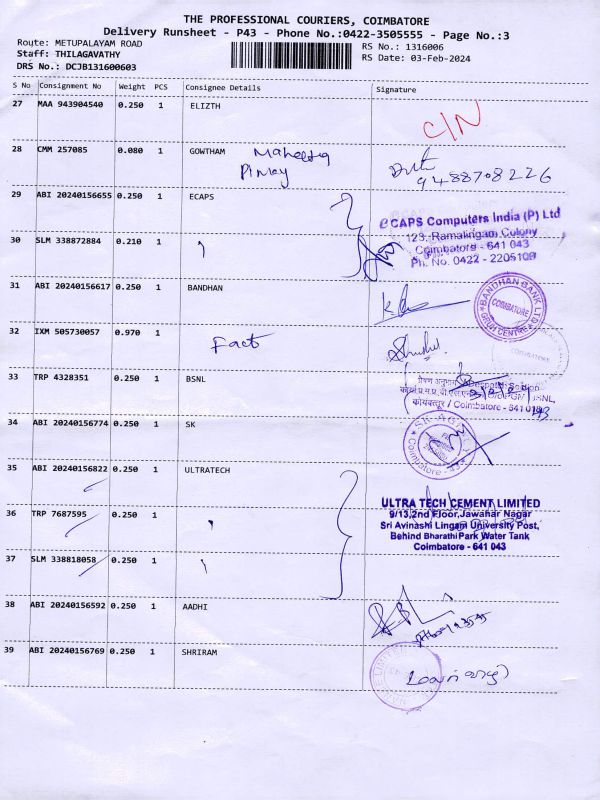 THE PROFESSIONAL COURIERS, COIMBATORE
Delivery Runsheet - P43 - Phone No.:0422-3505555 - Page No.:3
Route: METUPALAYAM ROAD
RS No.: 1316006
Staff: THILAGAVATHY
RS Date: 03-Feb-2024
DRS No.: DCJB131600603
S No Consignment No Weight PCS Consignee Details Signature
27 MAA 943904540 0.250 1 ELIZTH
C/N
28 CMM 257085 0.080 1 GOWTHAM
9488708226
29 ABI 20240156655 0.250 1 ECAPS
eCAPS Computers India (P) Ltd
123, Ramalingam Colony
Coimbatore - 641 043
Ph. No. 0422 -
30 SLM 338872884 0.210 1
31 ABI 20240156617 0.250 1 BANDHAN
BANDHAN BANK LTD
COIMBATORE
32 IXM 505730057 0.970 1 Fact
COIMBATORE
33 TRP 4328351 0.250 1 BSNL
BSNL,
कोयंबत्तूर / Coimbatore - 641 043
34 ABI 20240156774 0.250 1 SK
SK AGENCY
Coimbatore
35 ABI 20240156822 0.250 1 ULTRATECH
ULTRA TECH CEMENT LIMITED
9/13,2nd Floor,Jawahar Nagar
Sri Avinashi Lingam University Post,
Behind Bharathi Park Water Tank
Coimbatore - 641 043
36 TRP 7687595 0.250 1
37 SLM 338818058 0.250 1
38 ABI 20240156592 0.250 1 AADHI
39 ABI 20240156769 0.250 1 SHRIRAM